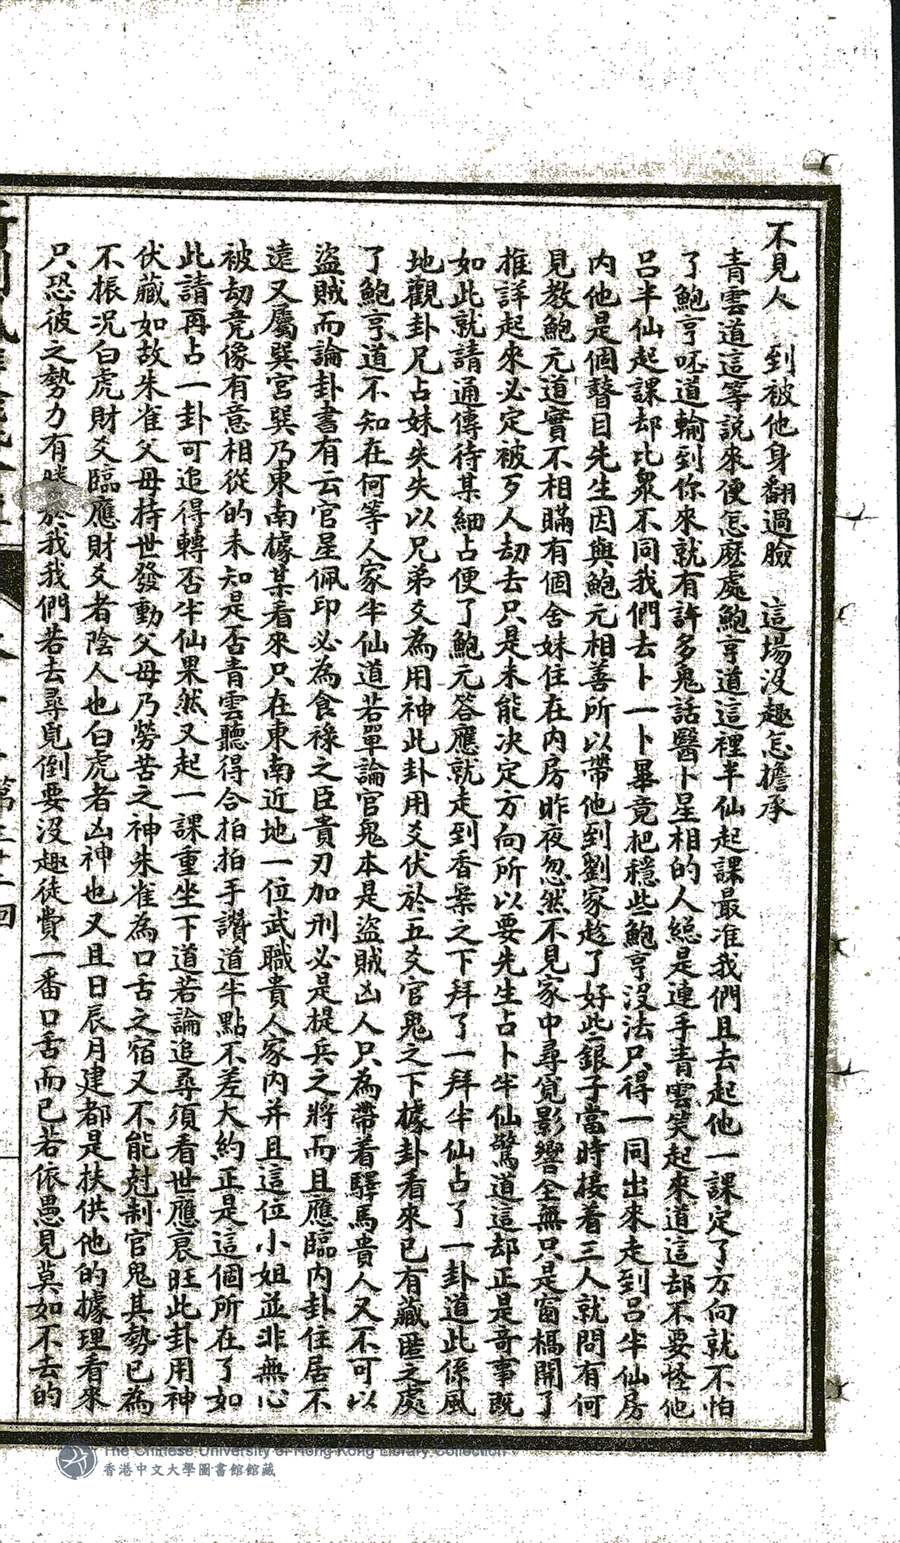 不見人　到被他身翻過臉　這場沒趣怎擔承
青雲道這等說來便怎麽處鮑亨道這裡半仙起課最准我們且去起他一課定了方向就不怕
了鮑亨呸道輪到你來就有許多鬼話醫卜星相的人總是連手青雲笑起來道這却不要怪他
呂半仙起課却比衆不同我們去卜一卜畢竟把穩些鮑亨沒法只得一同出來走到呂半仙房
内他是個瞽目先生因與鮑元相善所以帶他到劉家趂了好些銀子當時接着三人就問有何
見教鮑元道實不相瞞有個舍妹住在内房昨夜忽然不見家中尋覓影響全無只是窗槅開了
推詳起來必定被歹人劫去只是未能决定方向所以要先生占卜半仙驚道這却正是奇事既
如此就請通傳待某細占便了鮑元答應就走到香案之下拜了一拜半仙占了一卦道此係風
地觀卦兄占妹失失以兄弟爻為用神此卦用爻伏於五爻官鬼之下據卦看來已有藏匿之處
了鮑亨道不知在何等人家半仙道若單論官鬼本是盜賊凶人只為帶着驛馬貴人又不可以
盜賊而論卦書有云官星佩印必為食祿之臣貴刃加刑必是提兵之將而且應臨内卦住居不
遠又屬巽宮巽乃東南據某看來只在東南近地一位武職貴人家内并且這位小姐並非無心
被劫竟像有意相從的未知是否青雲聽得合拍拍手讚道半點不差大約正是這個所在了如
此請再占一卦可追得轉否半仙果然又起一課重坐下道若論追尋須看世應衰旺此卦用神
伏藏如故朱雀父母持世發動父母乃勞苦之神朱雀為口舌之宿又不能尅制官鬼其勢已為
不振况白虎財爻臨應財爻者陰人也白虎者凶神也又且日辰月建都是扶供他的據理看來
只恐彼之勢力有勝於我我們若去尋覓倒要沒趣徒費一番口舌而已若依愚見莫如不去的
第三十二回
The Chinese University of Hong Kong Library Collection
香港中文大學圖書館館藏